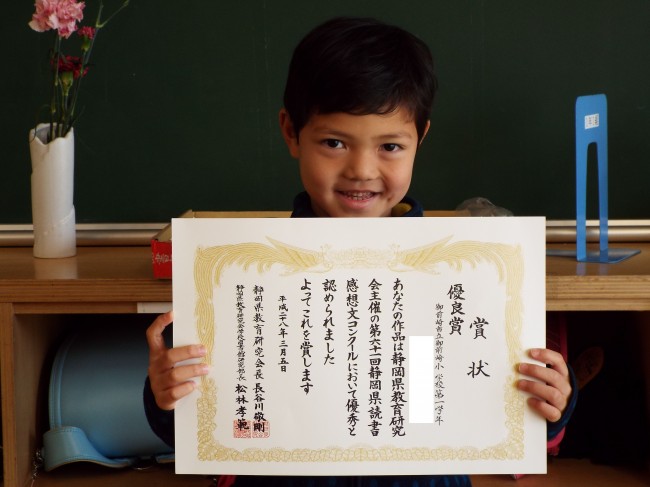 賞状
優良賞
御前崎市立御前崎小学校第一学年
あなたの作品は静岡県教育研究
会主催の第六十一回静岡県読書
感想文コンクールにおいて優秀と
認められました
よってこれを賞します
平成二八年三月五日
静岡県教育研究会長 長谷川敬剛
静岡県教育研究会学校図書館研究部長 松林孝範